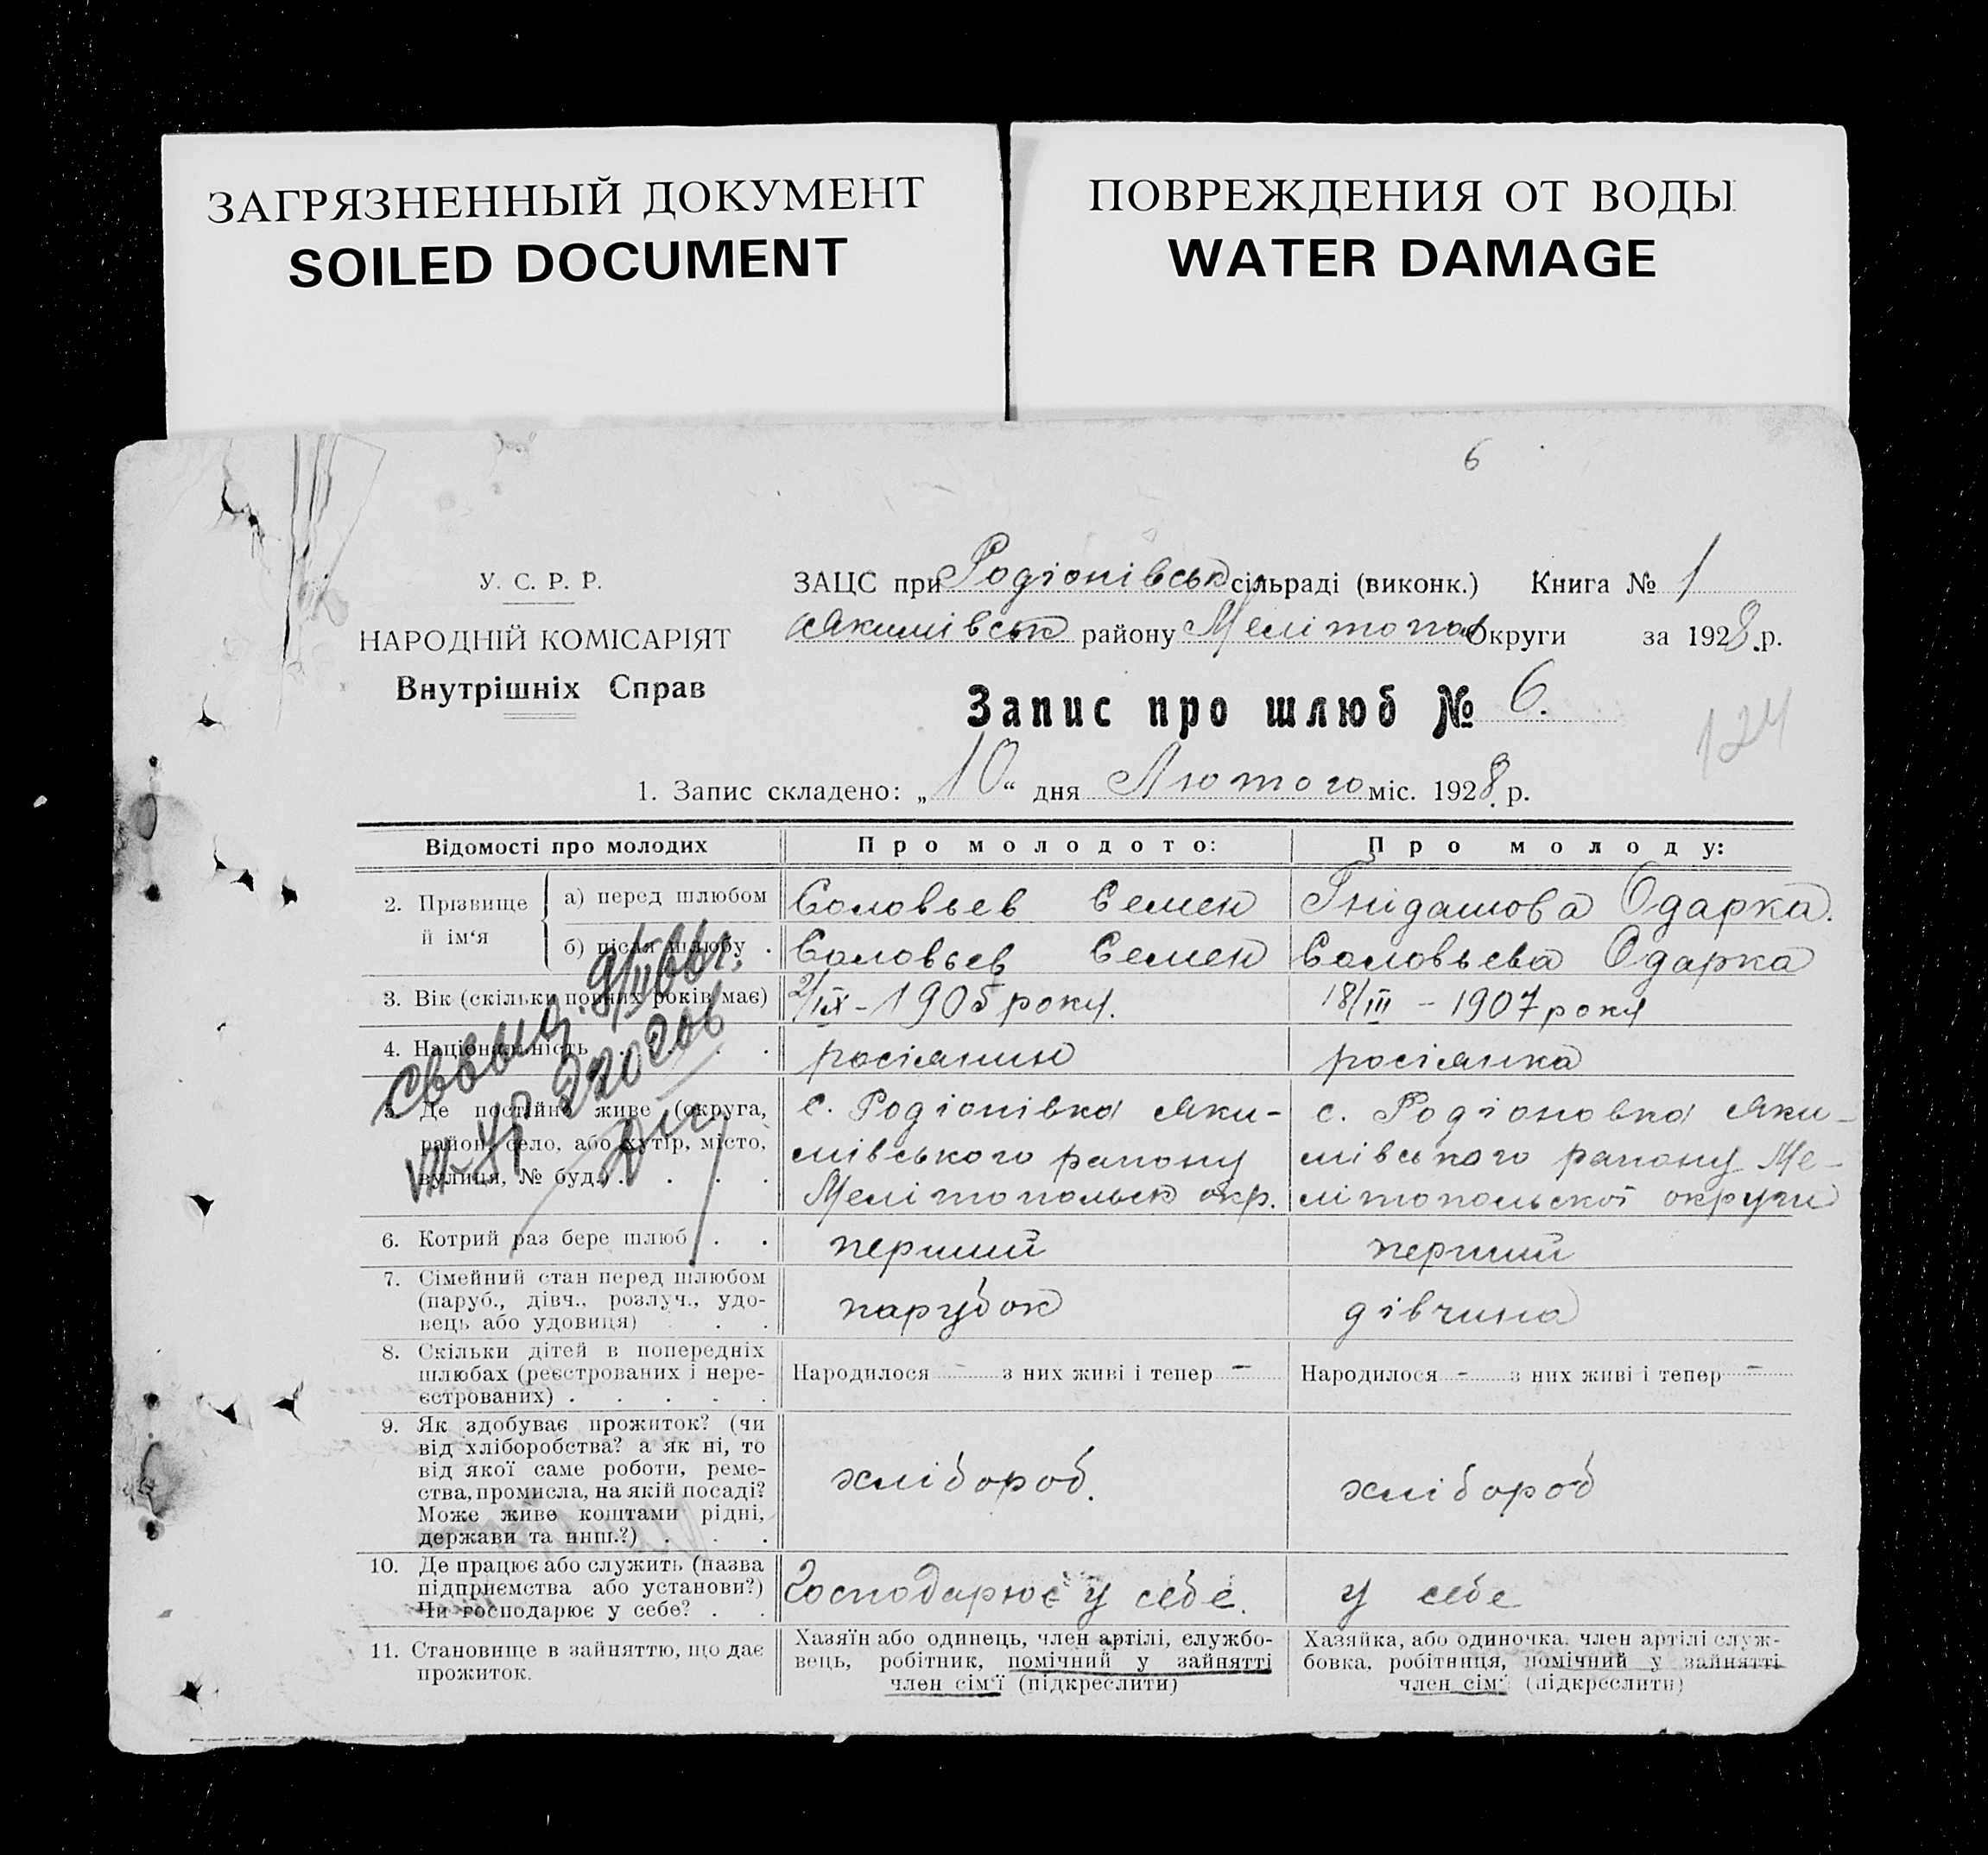 ЗАГРЯЗНЕННЫЙ ДОКУМЕНТ
SOILED DOCUMENT
ПОВРЕЖДЕНИЯ ОТ ВОДЫ
WATER DAMAGE
6
У. С. Р. Р.
НАРОДНІЙ КОМІСАРІЯТ
Внутрішніх Справ
ЗАЦС при Родіонівськ сільраді (виконк.) Книга № 1
Якимівськ району Мелітопол Округи за 1928 р.
Запис про шлюб № 6.
124
1. Запис складено: „10“ дня Лютого міс. 1928 р.
Відомості про молодих
Про молодого:
Про молоду:
2. Прізвище й ім‘я
а) перед шлюбом
Соловьев Семен
Гнідашова Одарка.
б) після шлюбу .
Соловьев Семен
Соловьева Одарка
3. Вік (скільки повних років має)
2/IX - 1905 року.
18/III - 1907 року
4. Національність . . . .
росіянин
росіянка
5. Де постійно живе (округа,
район, село, або хутір, місто,
вулиця, № буд.) . . . .
с. Родіонівка Яки-
мівського району
Мелітопольск окр.
с. Родіоновка Яки-
мівського району Ме-
літопольскої округи
6. Котрий раз бере шлюб . .
перший
перший
7. Сімейний стан перед шлюбом
(паруб., дівч., розлуч., удо-
вець або удовиця) . . .
парубок
дівчина
8. Скільки дітей в попередніх
шлюбах (реєстрованих і нере-
єстрованих) . . . . .
Народилося - з них живі і тепер -
Народилося - з них живі і тепер -
9. Як здобуває прожиток? (чи
від хліборобства? а як ні, то
від якої саме роботи, реме-
ства, промисла, на якій посаді?
Може живе коштами рідні,
держави та инш.?) . . .
хлібороб.
хлібороб
10. Де працює або служить (назва
підприємства або установи?)
Чи господарює у себе? . .
Господарює у себе.
у себе
11. Становище в зайняттю, що дає
прожиток.
Хазяїн або одинець, член артілі, службо-
вець, робітник, помічний у зайнятті
член сім‘ї (підкреслити)
Хазяйка, або одиночка, член артілі служ-
бовка, робітниця, помічний у зайнятті
член сім‘ї (підкреслити)